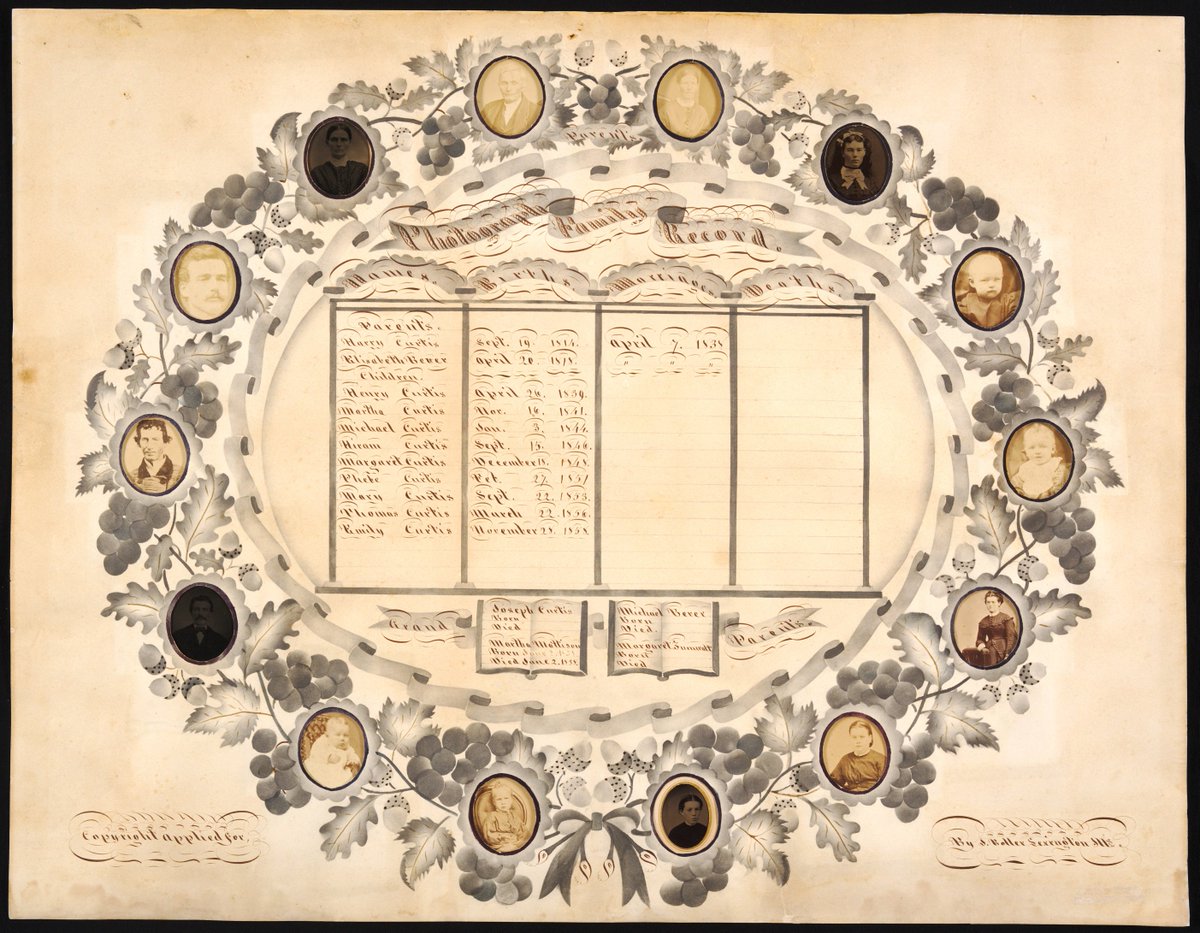 Parents
Photograph Family Record.
Names. Births. Marriages. Deaths.
Parents.
Harry Curtis Sept. 19. 1814. April 7. 1838
Elisabeth Bever April 20. " " "
Children
Henry Curtis April 26. 1839.
Martha Curtis Nov. 16. 1841.
Michael Curtis Jan. 3. 1844.
Hiram Curtis Sept. 15. 1846.
Margaret Curtis December 18. 1848.
Phebe Curtis 27. 1851
Mary Curtis Sept. 22. 1853.
Thomas Curtis March 22. 1856.
Emily Curtis November 29. 1858.
Grand Parents.
Joseph Curtis
Born
Died
Martha
Born June
Died June 2.
Michael Bever
Born
Died.
Margaret
Born
Died
Copyright applied for.
By J. Lexington